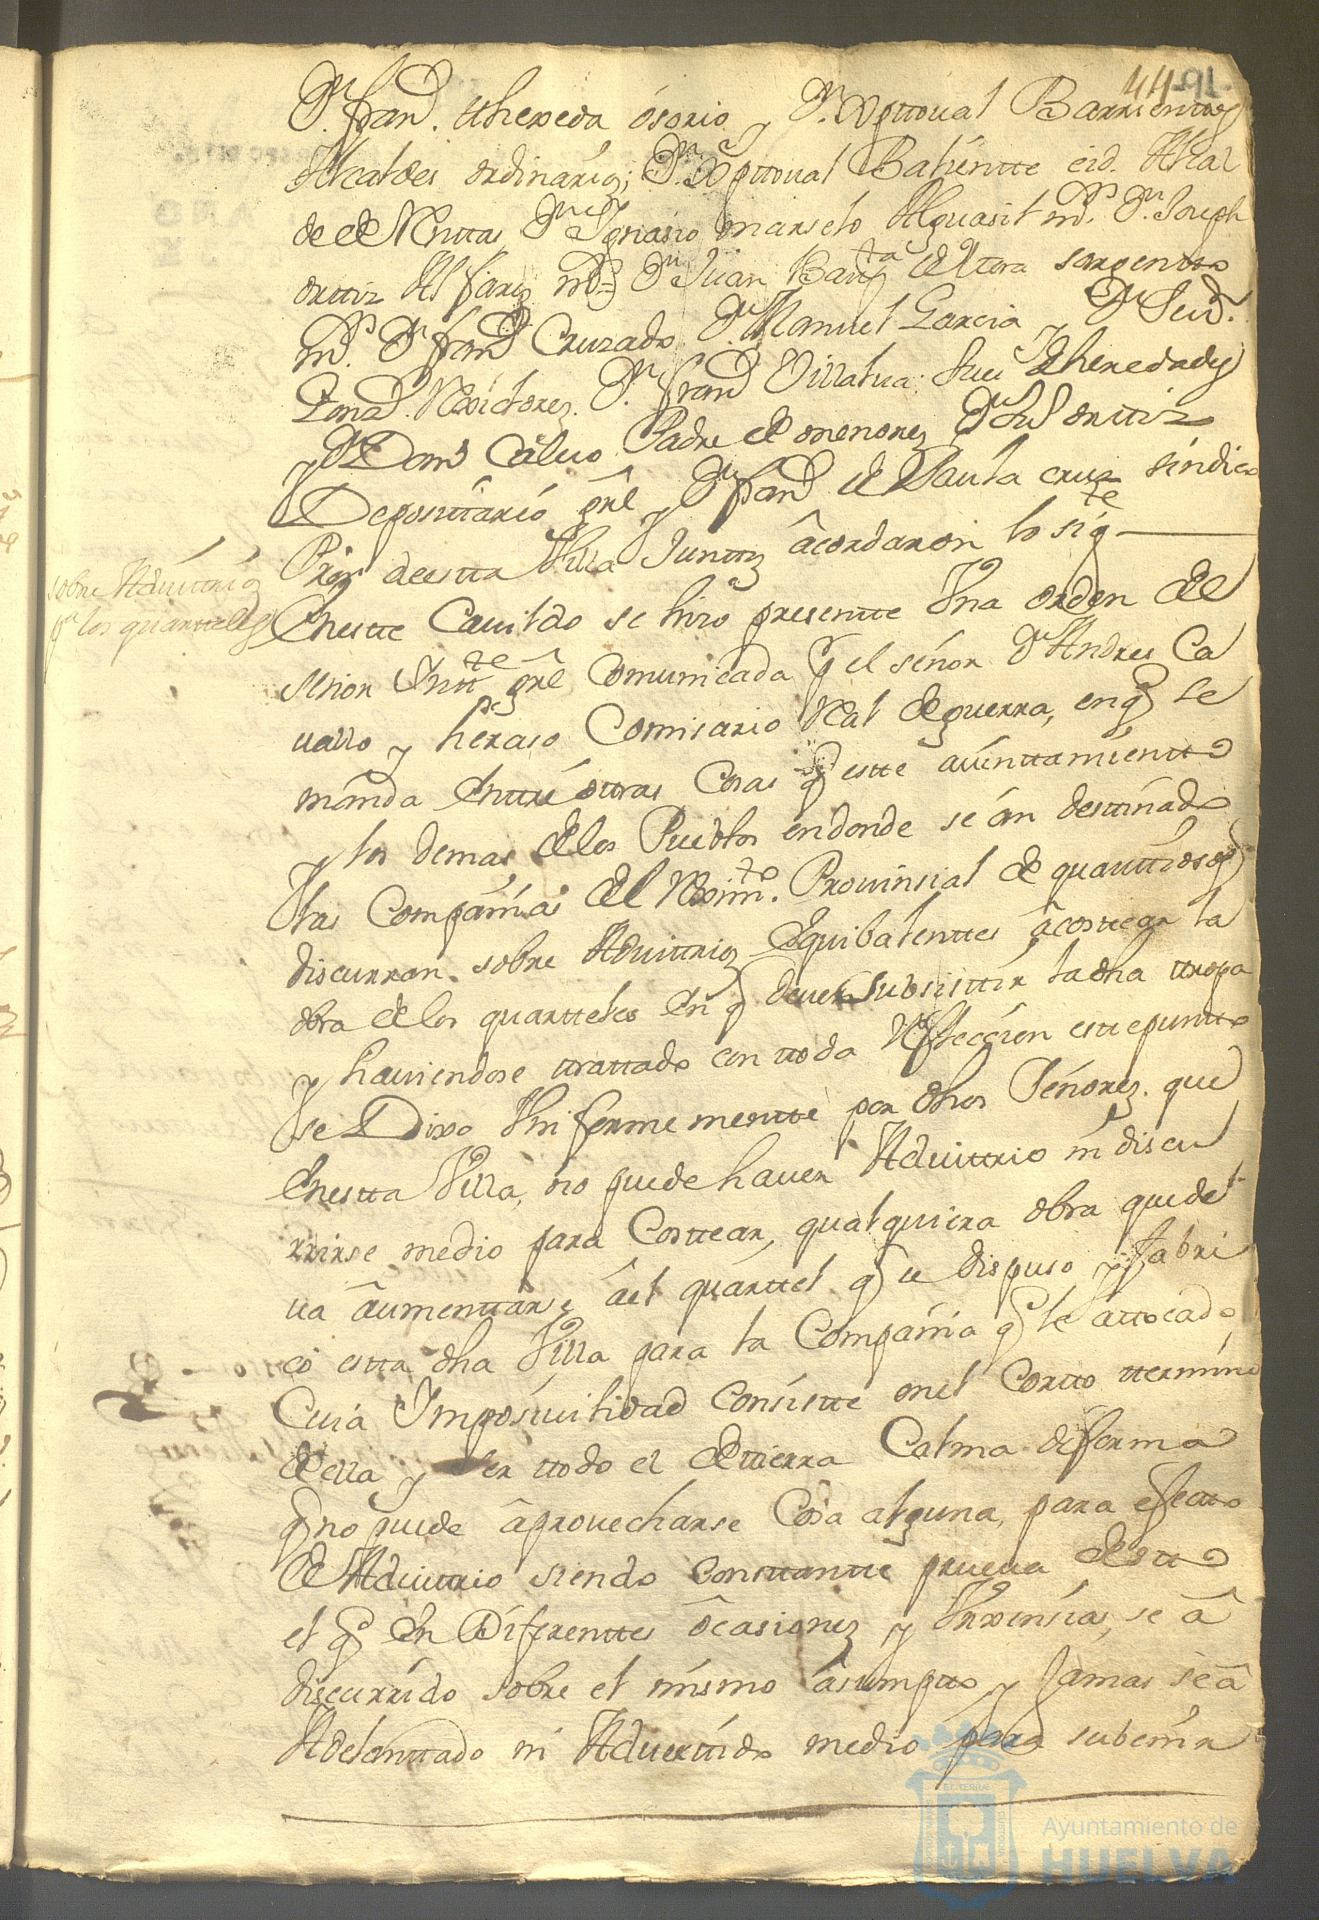 44 91
Dn. franco. de hereda ósorio y Dn. Xpttoual Barrientos
Alcaldes ordinarios; Dn. Xpttoual Baliéntte eid. Alcal
de de Renttas Dn. Ygnasio marselo Alguasil mor. Dn. Joseph
orttiz Alferez mor. Dn. Juan Bautta. de Mora sargentto
mor. Dn. franco. Cruzado Dn. Manuel Garcia y Dn.
Rexidores Dn. franco. Villalua Juez de heredades
y Dn. Domo. Caluo Padre de menores Dn. orttiz
Deposittario grāl y Dn. franco. de Santa cruz síndico
Pror. de estta Villa Junttos acordaron lo sigte
sobre Aduittrios
pa. los quartteles
Enestte Cauildo se hizo presentte Vna orden del
señor Yntte. grāl Comunicada pr el señor Dn. Andres Ca
uallo y heraso Comisario Real de guerra, en q se
mánda entre ottras Cosas q estte aiunttamientto
y los demas de los Pueblos endonde se án desttinado
las Compañias del Reximto. Prouinsial de quanttiosos
discurran sobre Aduittrios Equibalenttes a costtear la
obra de los quartteles en q deuen subsisttir la dha ttropa
y hauiendose ttrattado con ttoda Reflección estte puntto
se Dixo Vniformementte por dhos Señores que
Enestta Villa, no puede hauer Aduittrio ni discu
rrirse medio para Costtear, qualquiera obra que de
ua aumenttarse ael quarttel q se dispuso y fabri
có estta dha Villa para la Compañia q le a ttocado
Cuia Imposiuilidad Consistte en el Cortto ttermino
de ella y ser ttodo el de ttierra Calma de forma
q no puede aprouecharse Cosa alguna, para efectto
de Aduittrio siendo Consttantte prueua de estto
el q en Diferenttes ocasiones y Vrxensias, se â
discurrido sobre el mismo asumptto y Jamas se â
Adelanttado ni Aduerttido medio para subenir
ET TERRAE
Ayuntamiento de
HUELVA